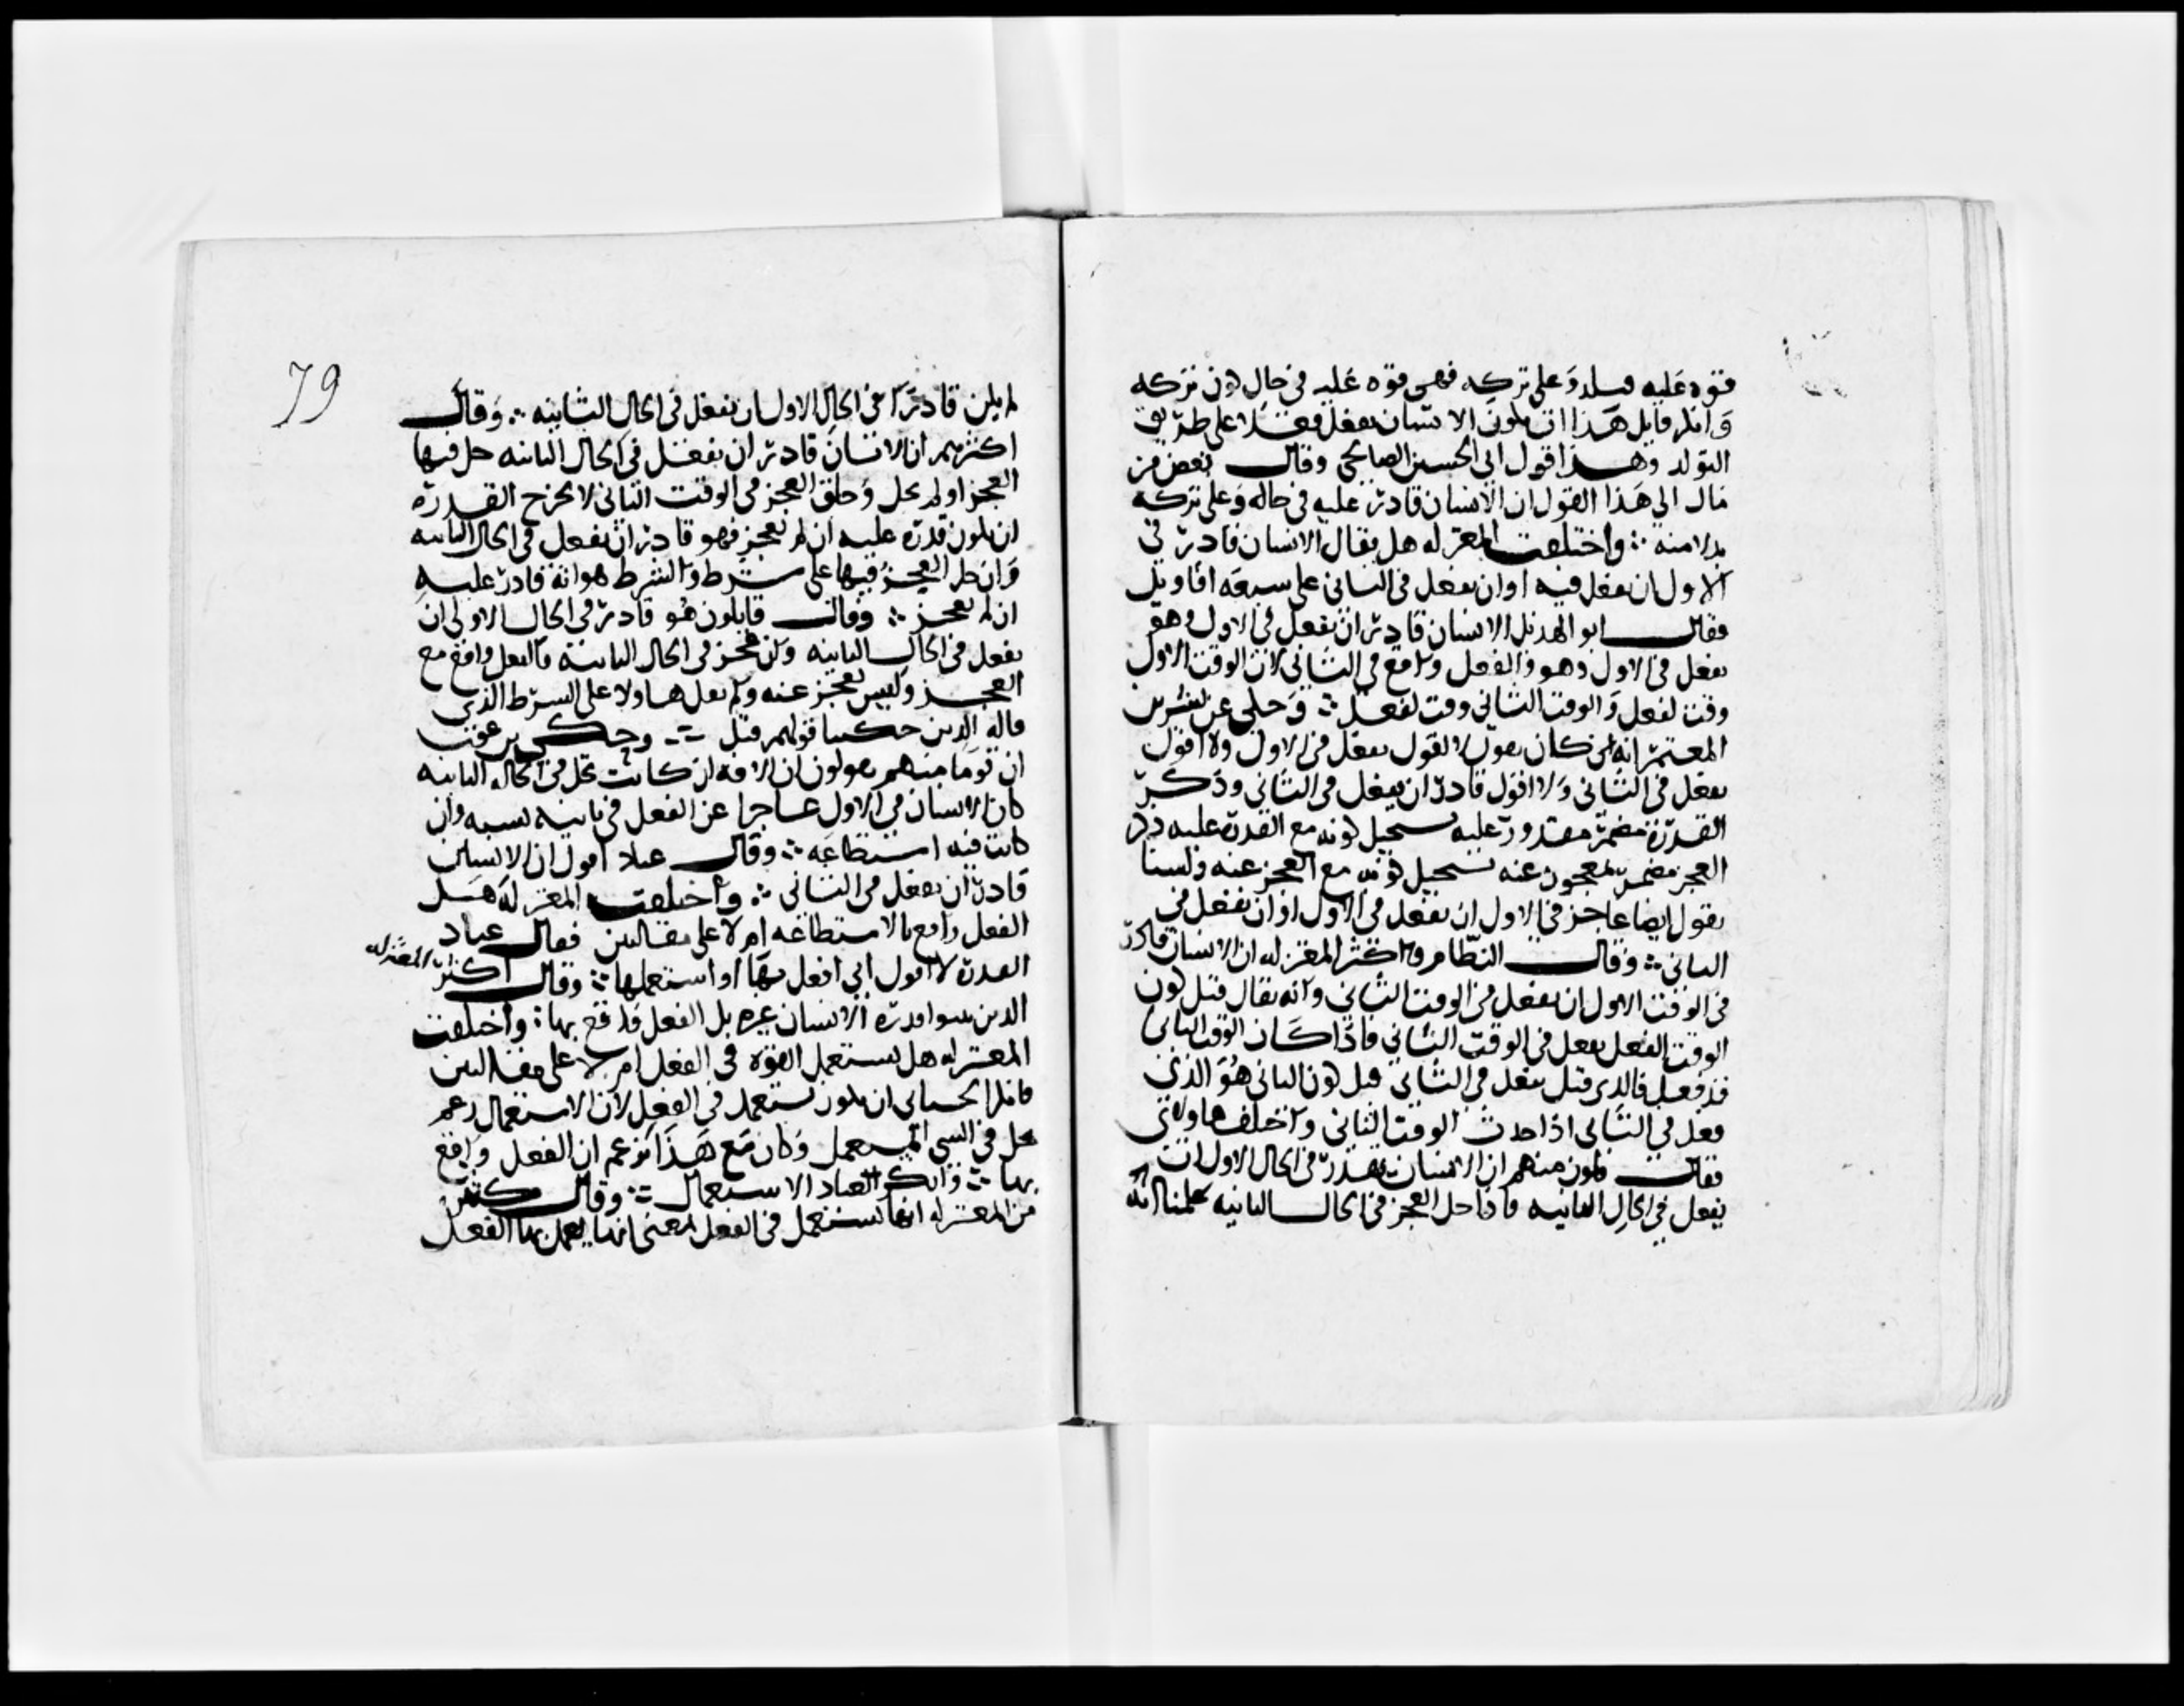 قوه عليه قبله وعلى تركه فهى قوه عليه فى حال كون تركه
وانكر قايل هذا ان يكون الانسان يفعل فعلا على طريق
التولد وهذا قول ابى الحسين الصالحى وقال بعض من
مال الى هذا القول ان الانسان قادر عليه فى حاله وعلى تركه
بدلا منه ∴ واختلفت المعتزله هل يقال الانسان قادر فى
الاول ان يفعل فيه او ان يفعل فى الثانى على سبعه اقاويل
فقال ابو الهذيل الانسان قادر ان يفعل فى الاول وهو
يفعل فى الاول وهو والفعل واقع فى الثانى لان الوقت الاول
وقت يفعل والوقت الثانى وقت فعل ∴ وحكى عن بشر بن
المعتمر انه كان يقول لا اقول يفعل فى الاول ولا اقول
يفعل فى الثانى ولا اقول قادر ان يفعل فى الثانى وذكر
القدرة مضمر مقدور عليه يستحيل كونه مع القدرة عليه وذكر
العجز مضمر بمعجوز عنه يستحيل كونه مع العجز عنه ولسنا
نقول ايضا عاجز فى الاول ان يفعل فى الاول او ان يفعل فى
الثانى ∴ وقال النظام واكثر المعتزله ان الانسان قادر
فى الوقت الاول ان يفعل فى الوقت الثانى وانه يقال قبل كون
الوقت الفعل يفعل فى الوقت الثانى فاذا كان الوقت الثانى
قد فعل فالذى قيل يفعل فى الثانى قبل كون الثانى هو الذى
فعل فى الثانى اذا حدث الوقت الثانى واختلف هاولاى
فقال قايلون منهم ان الانسان يقدر فى الحال الاول ان
يفعل فى الحال الثانيه فاذا حل العجز فى الحال الثانيه علمنا انه
79
لم يكن قادرا فى الحال الاول ان يفعل فى الحال الثانيه ∴ وقال
اكثرهم ان الانسان قادر ان يفعل فى الحال الثانيه حل فيها
العجز او لم يحل وخلق العجز فى الوقت الثانى لا يخرج القدرة
ان يكون قدرة عليه ان لم يعجز فهو قادر ان يفعل فى الحال الثانيه
وان حل العجز فيها على شرط والشرط هو انه قادر عليه
ان لم يعجز ∴ وقال قايلون هو قادر فى الحال الاولى ان
يفعل فى الحال الثانيه وان عجز فى الحال الثانية فالفعل واقع مع
العجز وليس بعجز عنه ولم يقل هاولا على الشرط الذى
قاله الذين حكينا قولهم قبل ∴ وحكى برغوث
ان قوما منهم يقولون ان الافه ان كانت تحل فى الحال الثانيه
كان الانسان فى الاول عاجزا عن الفعل فى ثانيه بسببه وان
كانت فيه استطاعه ∴ وقال عباد اقول ان الانسان
قادر ان يفعل فى الثانى ∴ واختلفت المعتزله هل
الفعل واقع بالاستطاعه ام لا على مقالتين فقال عباد
القدرة لا اقول انى افعل بها او استعملها ∴ وقال اكثر المعتزله
الذين ثبتوا قدرة الانسان غيره بل الفعل واقع بها ∴ واختلفت
المعتزله هل يستعمل القوة فى الفعل ام لا على مقالتين
فانكر الجبائى ان يكون تستعمل فى الفعل لان الاستعمال زعم
يحل فى الشى المستعمل وكان مع هذا يزعم ان الفعل واقع
بها ∴ وانكر عباد الاستعمال ∴ وقال كثير
من المعتزله انها تستعمل فى الفعل بمعنى انها يعمل بها الفعل